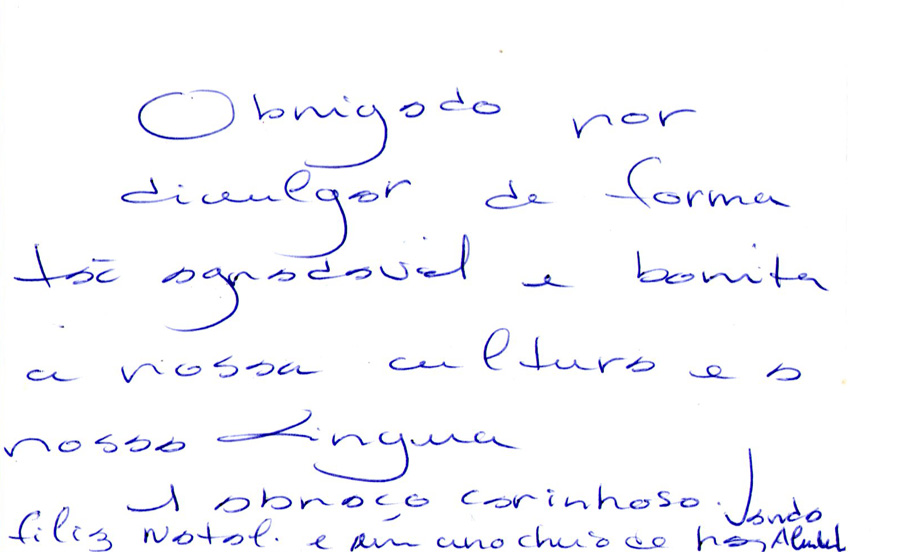 Obrigado por
divulgar de forma
tão agradável e bonita
a nossa cultura e a
nossa Língua
1 abraço carinhoso.
feliz Natal. e um ano cheio de